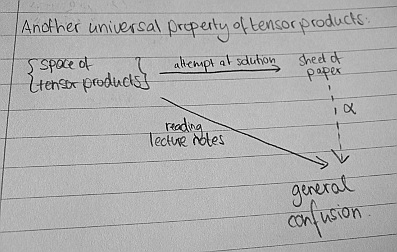 Another universal property of tensor products:
{space of
tensor products}
attempt at solution
sheet of
paper
α
reading
lecture notes
general
confusion.